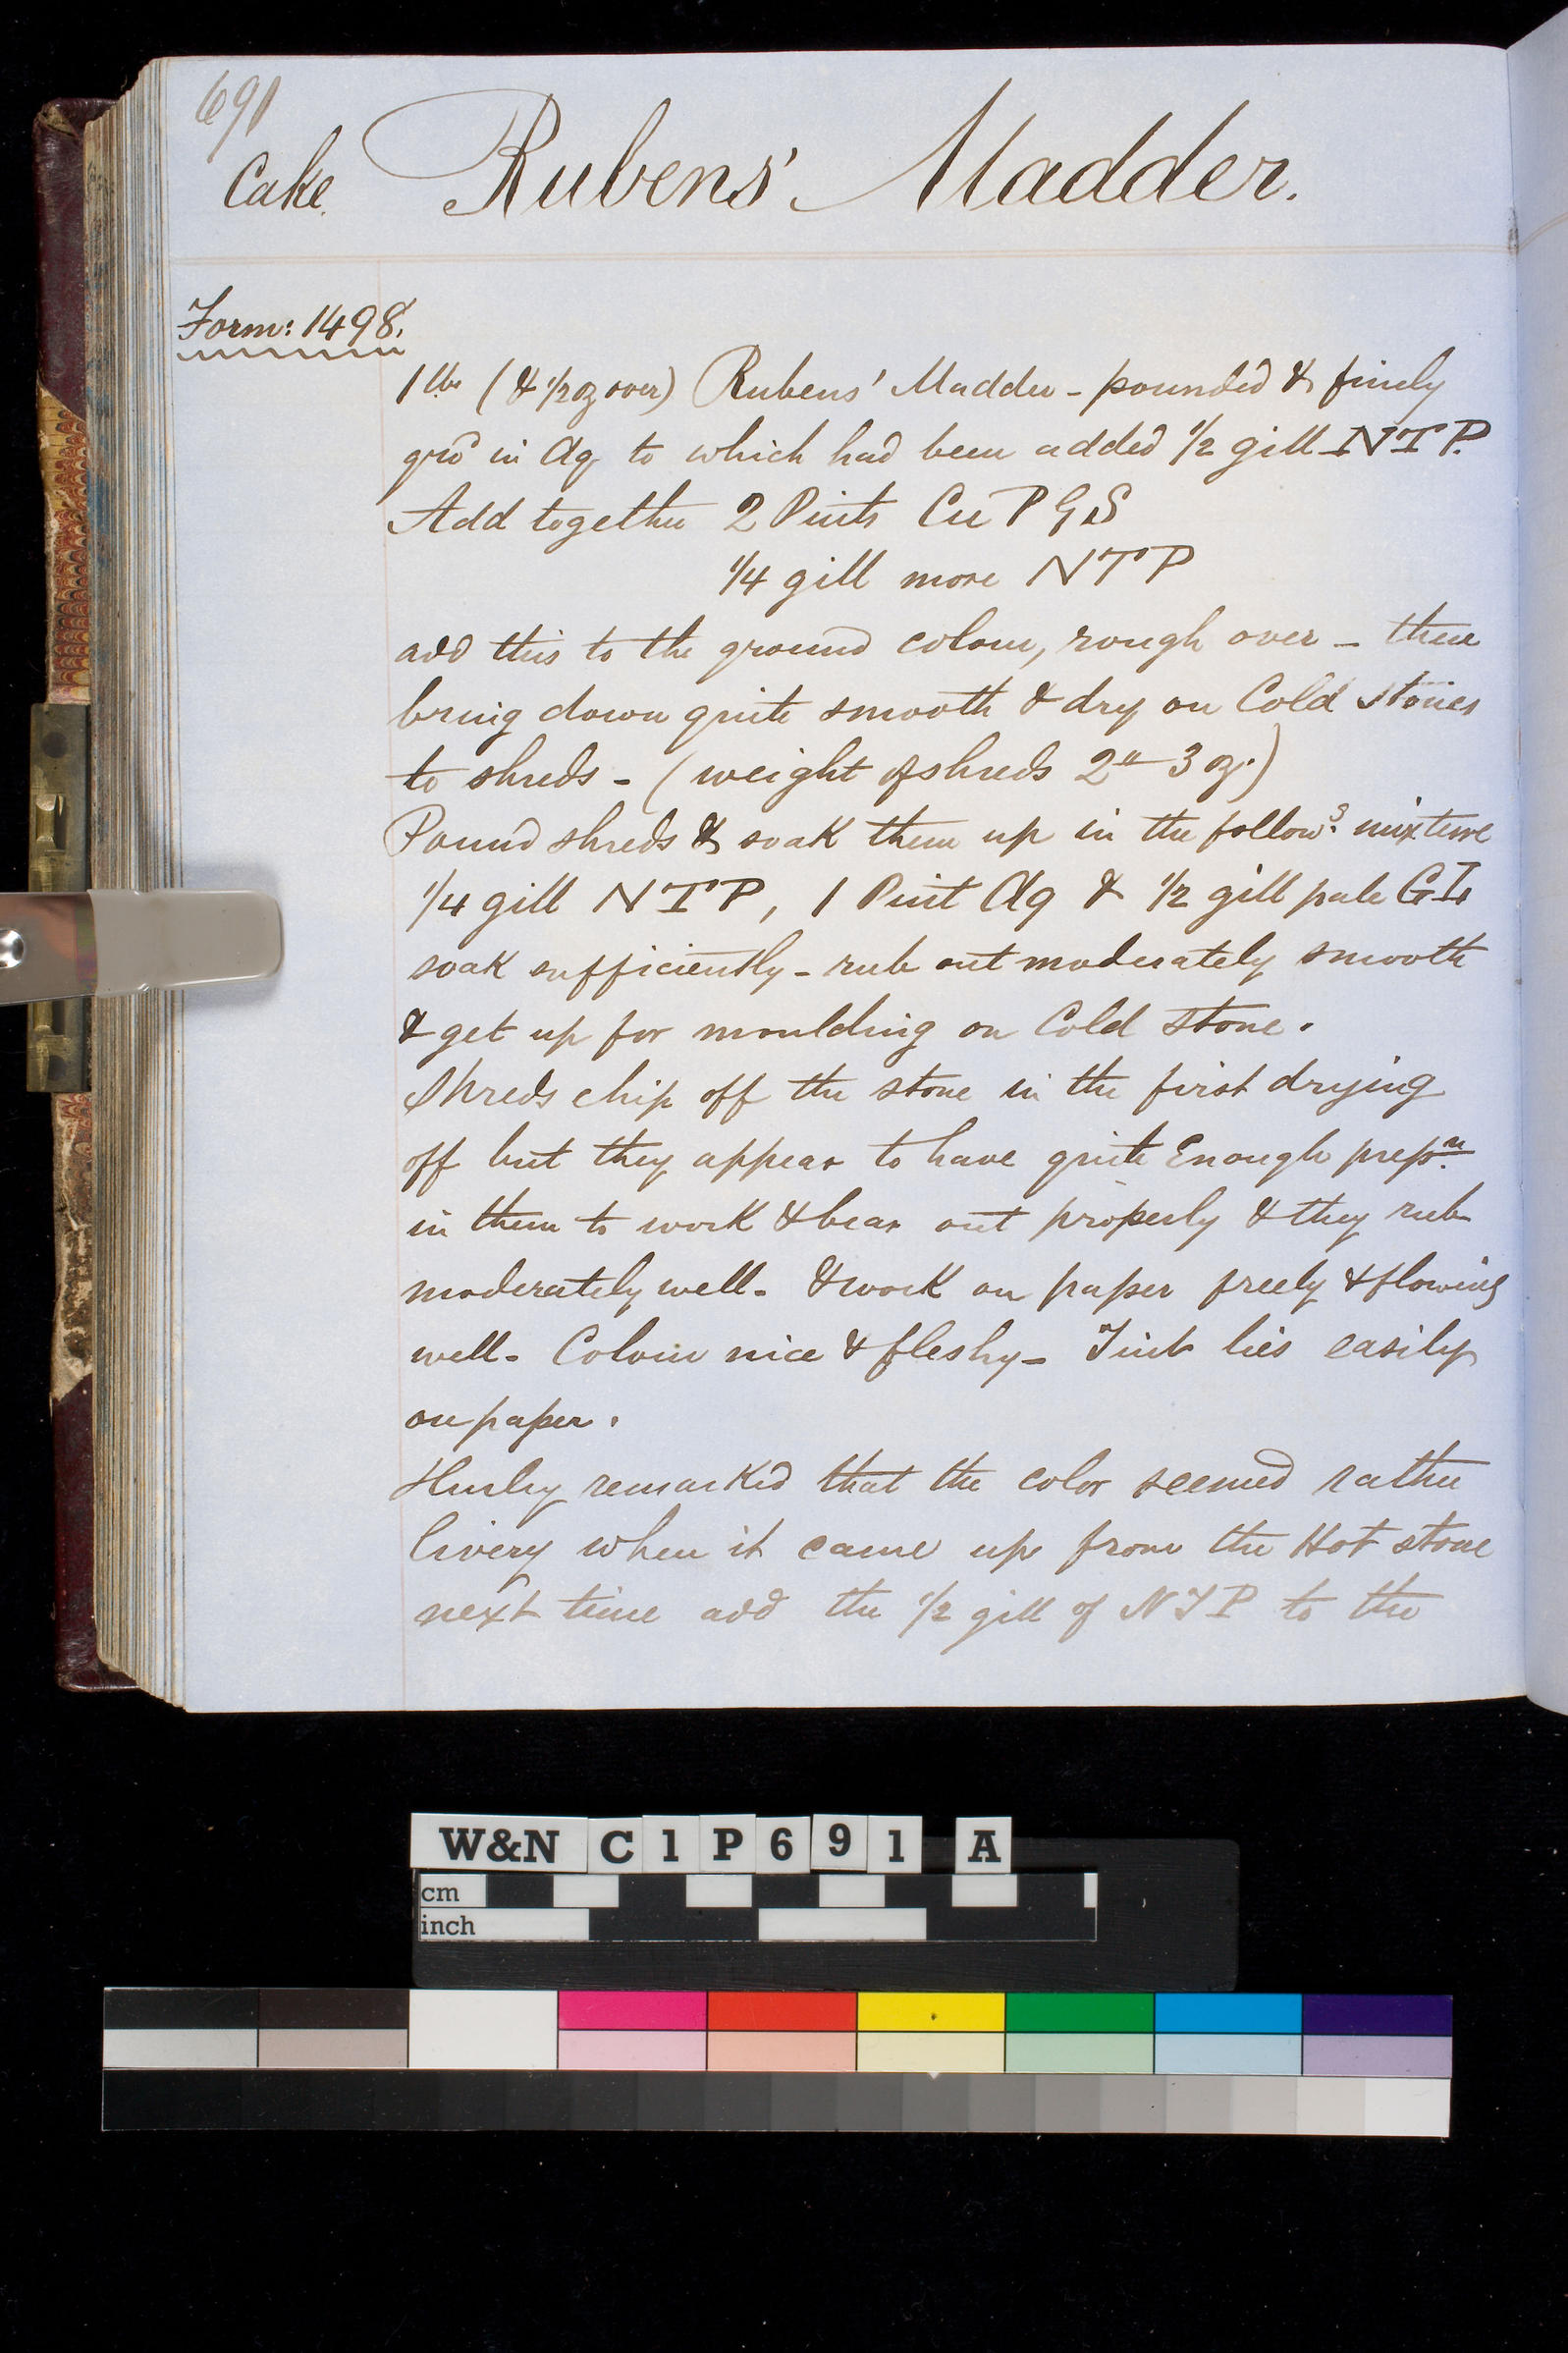 691
Cake. Rubens' Madder.
Form: 1498.
1 lb (& 1/2 oz over) Rubens' Madder - pounded & finely
grd in Aq to which had been added 1/2 gill NTP.
Add together 2 Pints Cu P G S
1/4 gill more NTP
add this to the ground colour, rough over - then
bring down quite smooth & dry on Cold stones
to shreds - (weight of shreds 2 3 oz.)
Pound shreds & soak them up in the followg. mixture
1/4 gill NTP, 1 Pint Aq & 1/2 gill pale G
soak sufficiently - rub out moderately smooth
& get up for moulding on Cold Stone.
Shreds chip off the stone in the first drying
off but they appear to have quite Enough prepn.
in them to work & bear out properly & they rub
moderately well. & work on paper freely & flowing
well. Colour nice & fleshy - Tint lies easily
on paper.
remarked that the color seemed rather
livery when it came up from the Hot stone
next time add the 1/2 gill of NTP to the
W&N C1P691 A
cm
inch